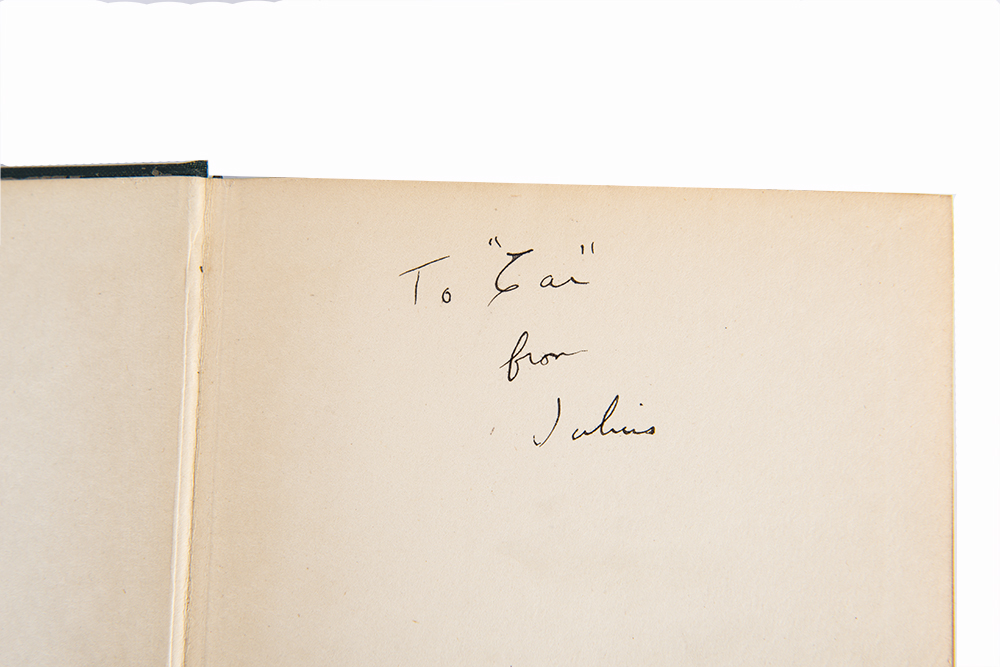 To
from
Julius